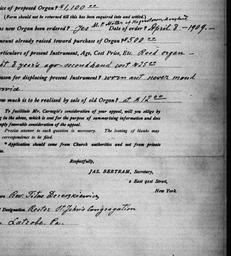 ice of proposed Organ? $1,100.00
(Form should not be returned till this has been inquired into and settled.)
a new Organ been ordered? Yes Date of order? April 8 - 1909.
mount already raised toward purchase of Organ $500.00
articulars of present Instrument, Age, Cost Price, Etc. Reed organ
8 year's ago secondhand cost $35.00
eason for displacing present Instrument? worn out never
ow much is to be realized by sale of old Organ?
To facilitate Mr. Carnegie's consideration of your appeal, will you oblige by
ng in the above, which is sent for the purpose of summarizing information and does
mply favorable consideration of the appeal.
Precise answer to each question is necessary. The leaving of blanks may
correspondence to be filed.
* Application should come from Church authorities and not from private
Respectfully,
JAS. BERTRAM, Secretary,
2 East 91st Street,
New York.
Rev. Titus
Designation Rector St John's Congregation
Latrobe, Pa.